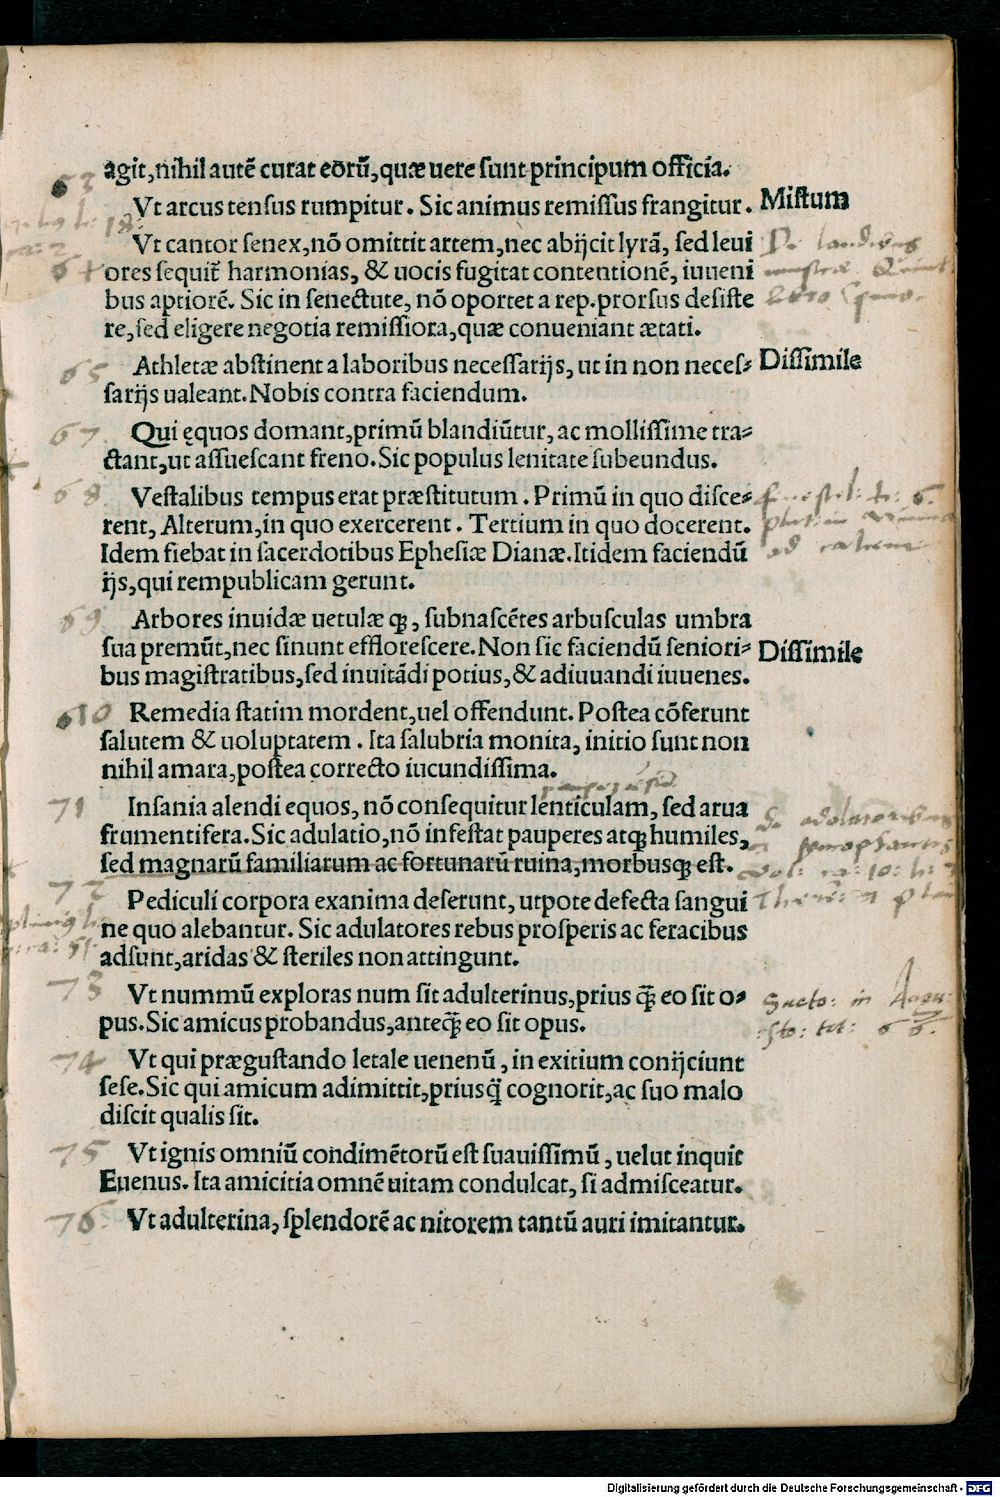 agit,nihil autē curat eorū,quæ uere sunt principum officia.
63
Vt arcus tensus rumpitur. Sic animus remissus frangitur. Mistum
18
Vt cantor senex,nō omittit artem,nec abijcit lyrā, sed leui
64
ores sequit̄ harmonias, & uocis fugitat contentionē, iuueni
bus aptiorē. Sic in senectute, nō oportet a rep.prorsus desiste
re,sed eligere negotia remissiora,quæ conueniant ætati.
65 Athletæ abstinent a laboribus necessarijs, ut in non neces= Dissimile
sarijs ualeant.Nobis contra faciendum.
67 Qui ęquos domant,primū blandiūtur, ac mollissime tra=
ctant,ut assuescant freno.Sic populus lenitate subeundus.
68 Vestalibus tempus erat præstitutum. Primū in quo disce=
rent, Alterum,in quo exercerent. Tertium in quo docerent.
Idem fiebat in sacerdotibus Ephesiæ Dianæ.Itidem faciendū
ijs,qui rempublicam gerunt.
69 Arbores inuidæ uetulæ q;, subnascētes arbusculas umbra
sua premūt,nec sinunt efflorescere.Non sic faciendū seniori= Dissimile
bus magistratibus,sed inuitādi potius,& adiuuandi iuuenes.
Remedia statim mordent,uel offendunt. Postea cōferunt
salutem & uoluptatem. Ita salubria monita, initio sunt non
nihil amara,postea correcto iucundissima.
71 Insania alendi equos, nō consequitur lenticulam, sed arua
frumentifera.Sic adulatio,nō infestat pauperes atq; humiles,
sed magnarū familiarum ac fortunarū ruina,morbusq; est.
72
Pediculi corpora exanima deserunt, utpote defecta sangui
ne quo alebantur. Sic adulatores rebus prosperis ac feracibus
adsunt,aridas & steriles non attingunt.
73 Vt nummū exploras num sit adulterinus,prius q̄ eo sit o=
pus.Sic amicus probandus,anteq̄ eo sit opus.
74 Vt qui prægustando letale uenenū, in exitium conijciunt
sese.Sic qui amicum adimittit,priusq̄ cognorit,ac suo malo
discit qualis sit.
75 Vt ignis omniū condimētorū est suauissimū, uelut inquit
Euenus. Ita amicitia omnē uitam condulcat, si admisceatur.
76 Vt adulterina, splendorē ac nitorem tantū auri imitantur.
Digitalisierung gefördert durch die Deutsche Forschungsgemeinschaft - DFG